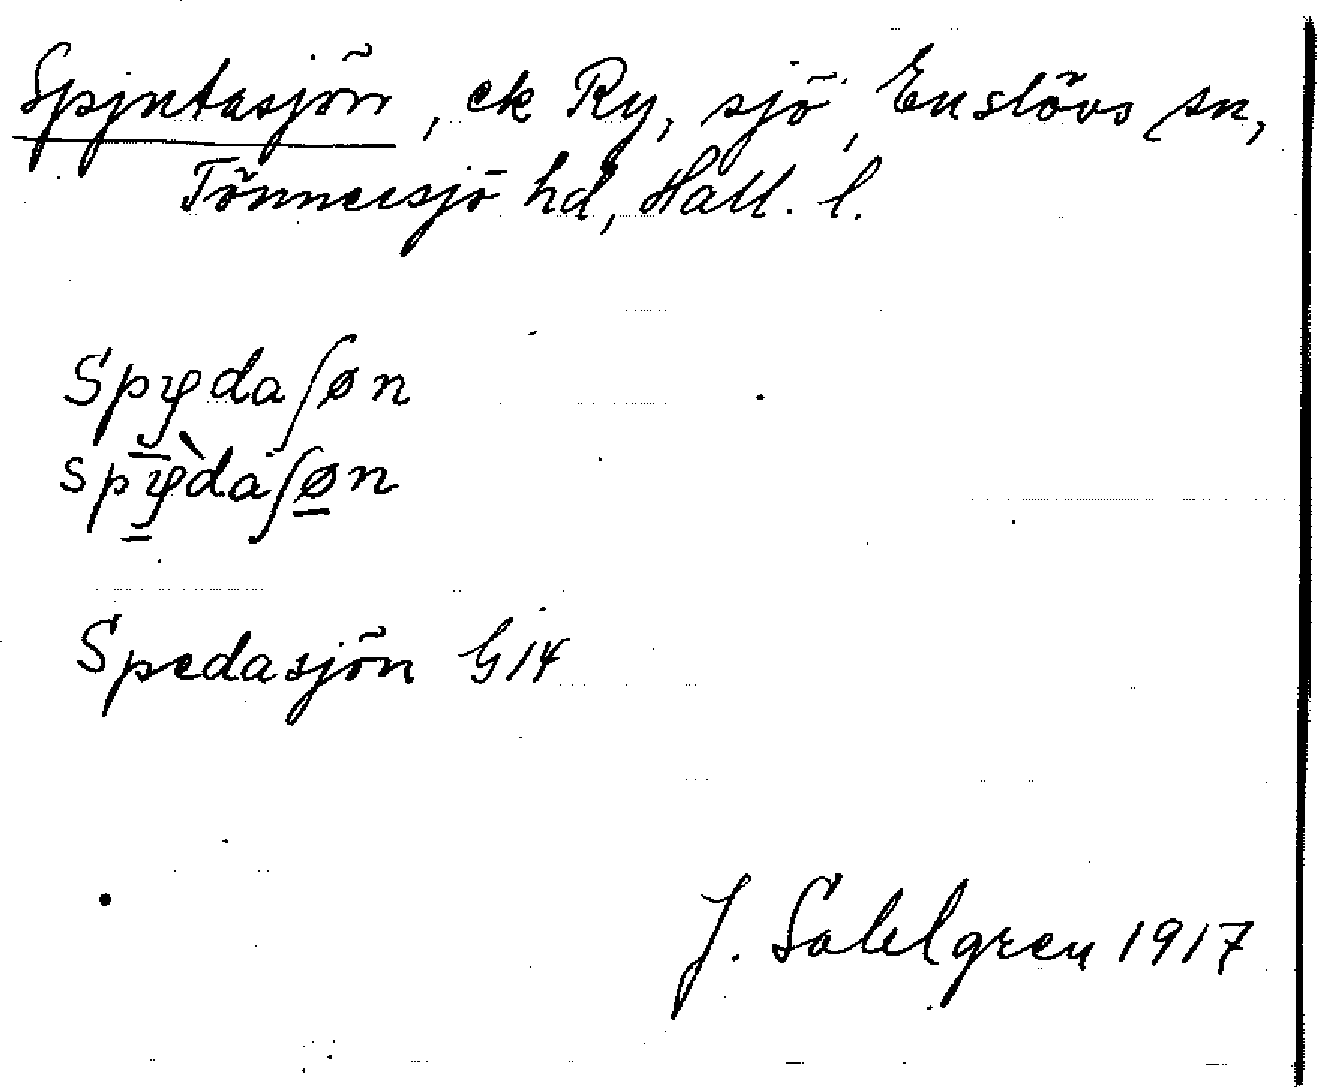 Spjutasjön, ek Ry, sjö, Enslövs sn,
Tönnersjö hd, Hall. l.
Spedasjön G14
J. Sahlgren 1917